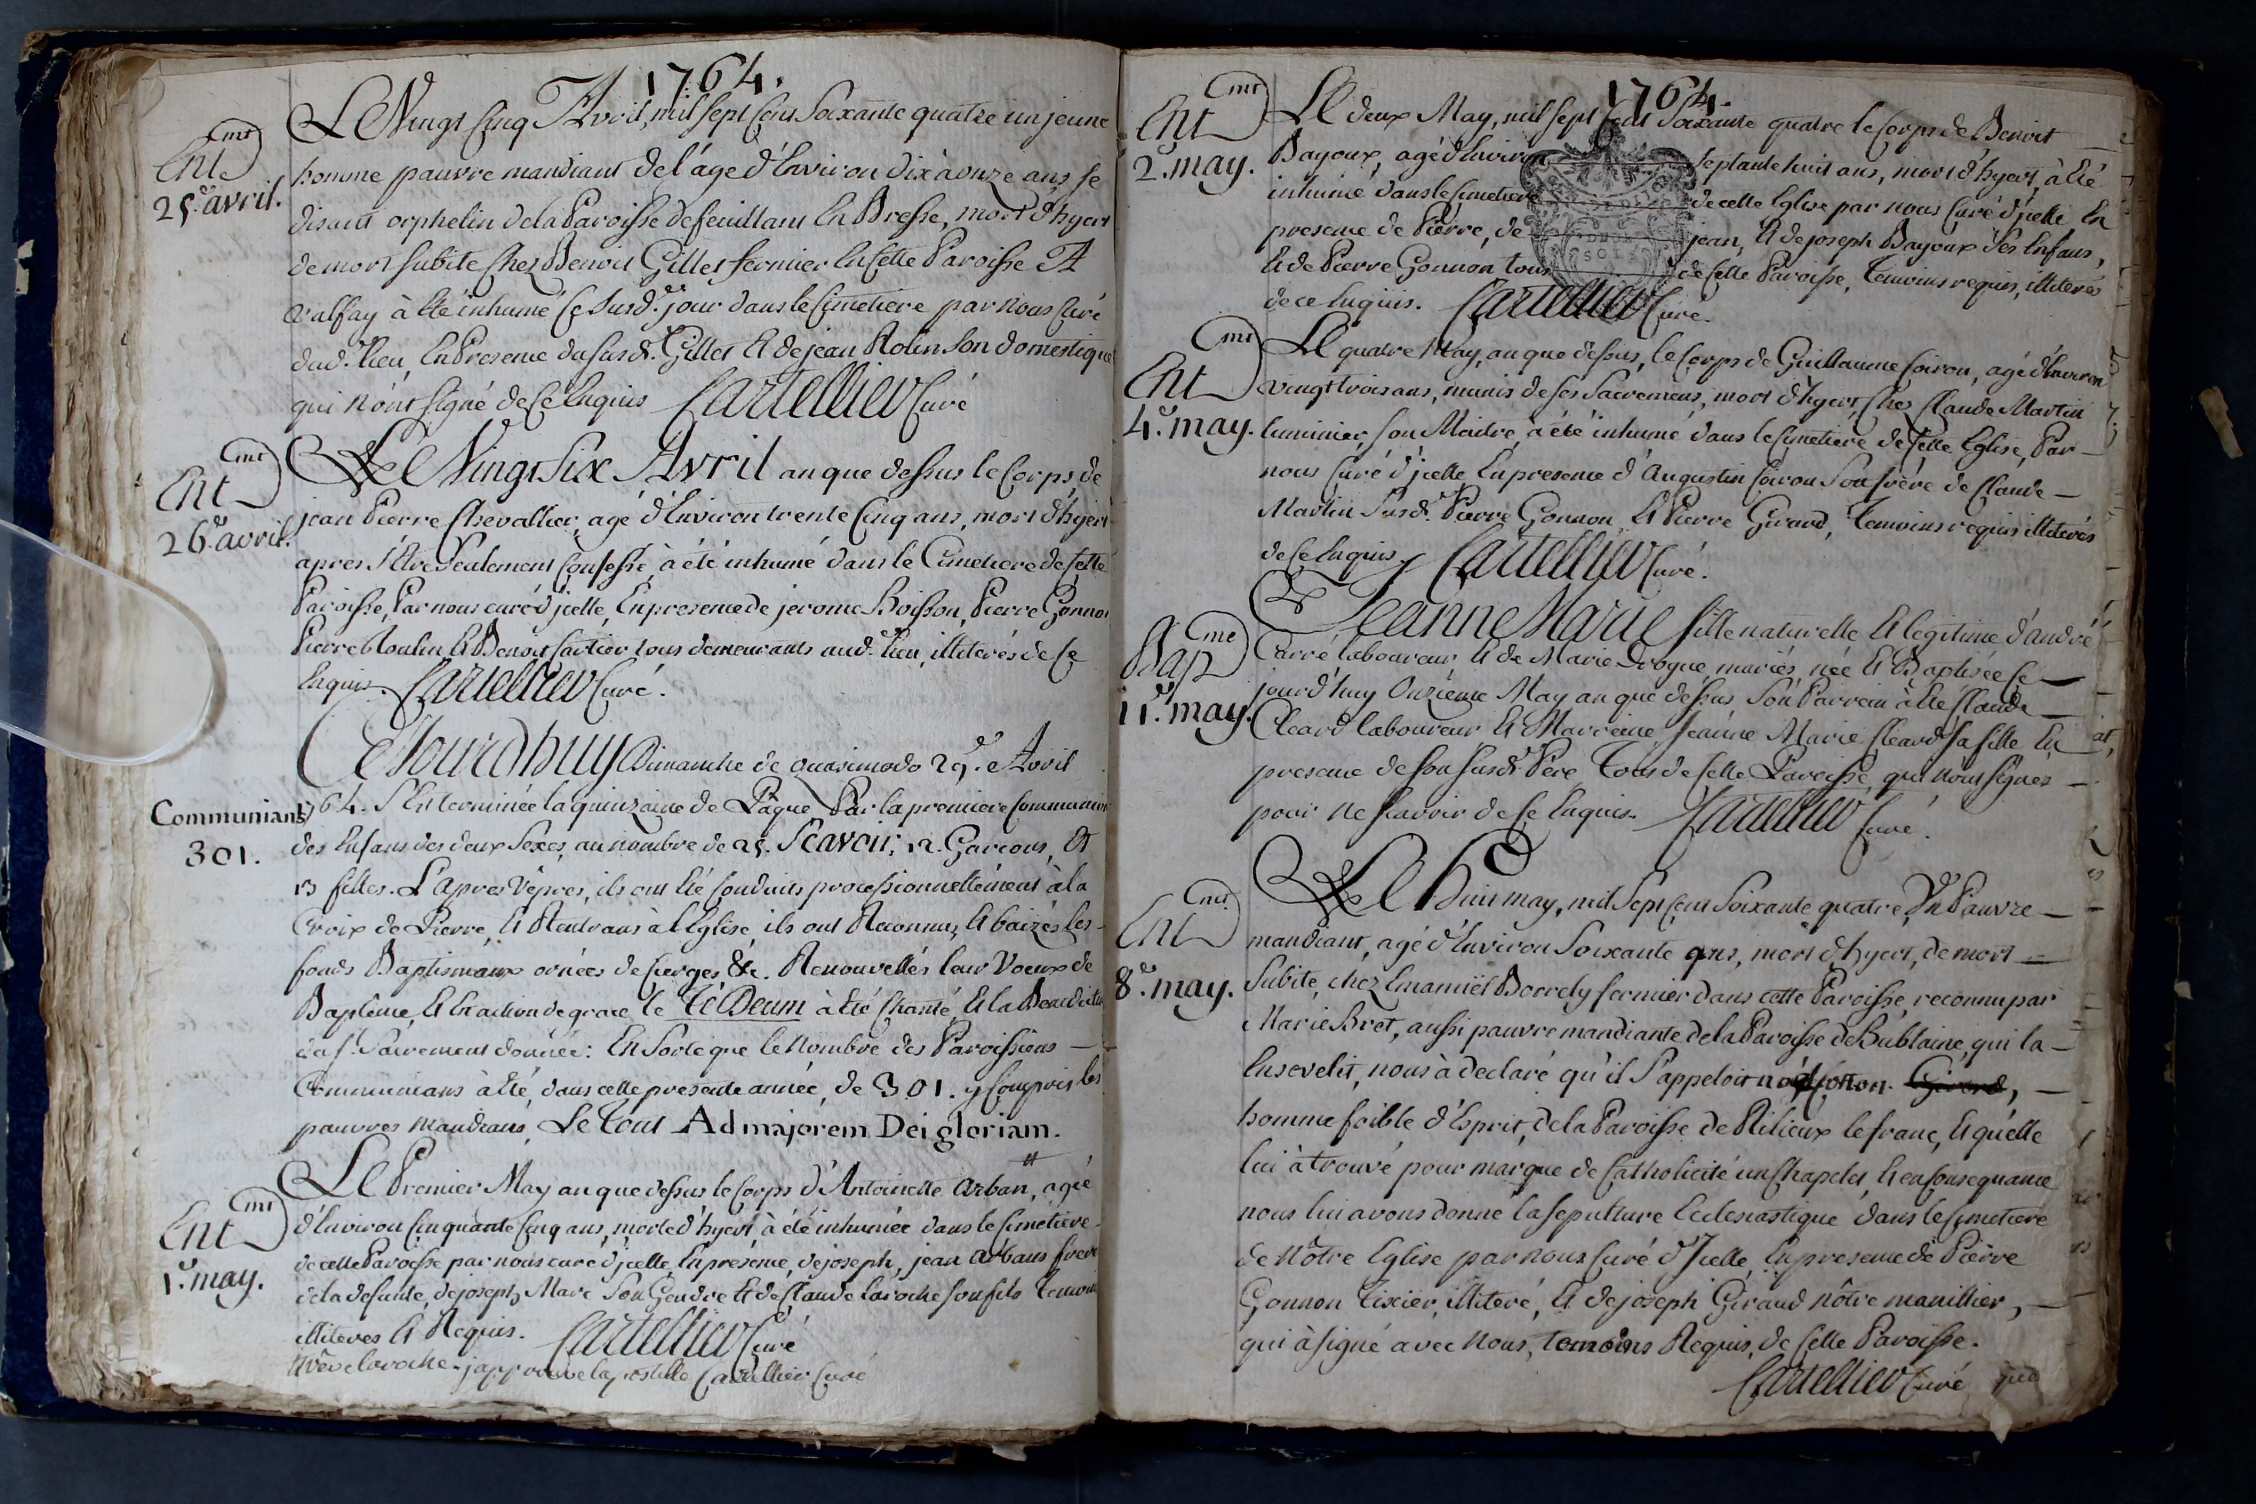 1764.
Ent.mt
25.e avril.
Le Vingt Cinq Avril, mil sept Cent Soixante quatre un jeune
homme pauvre mandiant de l'âge d'Environ dix à onze ans, se
disant orphelin de la Paroisse de feuillant En Bresse, mort d'hyert
de mort subite Chez Benoit Gilles fermier En Cette Paroisse
à Eté inhumé Ce Susd.t jour dans le Cimetiere par nous Curé
dud. Lieu, En Presence du susd.t Gilles Et de jean Rolin Son domestique
qui n'ont signé de Ce Enquis Cartellier Curé
Ent.mt
26.e avril.
Le Vingt Six Avril an que dessus le Corps de
jean Pierre Chevallier, agé d'Environ trente Cinq ans, mort d'hyert
apres s'être Sealement Confessé, à été inhumé dans le Cimetiere de Cette
Paroisse, Par nous curé d'jcelle, En presence de jerome Boisson, Pierre Gonnon
Pierre Moulin Et Benoit Cartier tous demeurants aud.t Lieu, illiterés de Ce
Enquis. Cartellier Curé.
Communians
301.
Cejourdhuy Dimanche de quasimodo 29.e Avril
1764. S'Est terminée la quinzaine de Pâque, Par la premiere Communion
des Enfans des deux Sexes, au nombre de 25. Scavoir; 12. Garcons, Et
13 filles. L'apres Vêpres, ils ont Eté Conduits processionnellement à la
Croix de Pierre, Et Rentrans à l'Eglise, ils ont Reconnus, Et baizés les
fonds Baptismaux ornées de Cierges &c. Renouvellés leur Voeux de
Baptême, Et En action de grace le Te Deum à Eté Chanté, Et la Benediction
du S.t Sacrement donnée: En Sorte que le Nombre des Paroissiens
Communians à Eté, dans cette presente année, de 301. y Compris les
pauvres mandians, Le Tout Ad majorem Dei gloriam.
Ent.mt
1.er may.
Le Premier May an que dessus le Corps d'Antoinette Arban, agée
d'Environ Cinquante Cinq ans, morte d'hyert à été inhumée dans le Cimetiere
de cette Paroisse par nous curé d'jcelle, En présence, de joseph, jean Arbans freres
de la defunte, de joseph Mare Son Gendre Et de Claude Laroche son fils Temoins
illiteres Et Requis. Cartellier Curé
Vêve Laroche. j'approuve l'apostille Cartellier Curé
1764.
Ent.mt
2.e may.
Le deux May, mil sept Cent Soixante quatre le Corps de Benoit
Bayoux, agé d'Environ septante huit ans, mort d'hyert, à Eté
inhumé dans le Cimetiere de cette Eglise par nous Curé d'jcelle En
presence de Pierre, de jean, Et de joseph Bayoux Ses Enfans,
Et de Pierre Gonnon tous de Cette Paroisse, Temoins requis, illiterés
de ce Enquis. Cartellier Curé.
Ent.mt
4.e may.
Le quatre May, an que dessus, le Corps de Guillaume Coiron, agé d'Environ
vingt trois ans, munis de Ses Sacremens, mort d'hyert Chez Claude Martin
luminier, Son Maitre, à été inhumé dans le Cimetiere de Cette Eglise, Par
nous Curé d'jcelle En presence d'Augustin Coiron Son frère de Claude
Martin Susd.t Pierre Gonnon Et Pierre Giraud, Temoins requis illiterés
de Ce Enquis Cartellier Curé.
Bap.me
11.e may.
Jeanne Marie fille naturelle Et legitime d'andré
Carré laboureur Et de Marie Drogue mariés, née Et Baptisée Ce
jourd'huy Onzieme May an que dessus Son Parrein à Eté Claude
Cleard laboureur Et Marreine Jeanne Marie Cleard sa fille En
presence de Son Susd.t Pere Tous de Cette Paroisse, qui n'ont signés
pour ne scavoir de Ce Enquis. Cartellier Curé.
Ent.mt
8.e may.
Le huit may, mil Sept Cent Soixante quatre, Un Pauvre
mandiant, agé d'Environ Soixante ans, mort d'hyert, de mort
Subite, chez Emanuël Borrely fermier dans cette Paroisse, reconnu par
Marie Bret, aussi pauvre mandiante de la Paroisse de Bublaine, qui la
Ensevelit, nous à declaré qu'il S'appeloit
homme foible d'Esprit, de la Paroisse de Rilieux le franc, Et qu'elle
lui à trouvé pour marque de Catholicité un Chapelet, Et en Consequance
nous lui avons donné la sepulture Ecclesiastique dans le Cimetiere
de Nôtre Eglise par nous Curé d'Jcelle, En presence de Pierre
Gonnon Tixier, illiteré, Et de joseph Giraud nôtre manillier,
qui à signé avec nous, temoins Requis, de Cette Paroisse.
Cartellier Curé